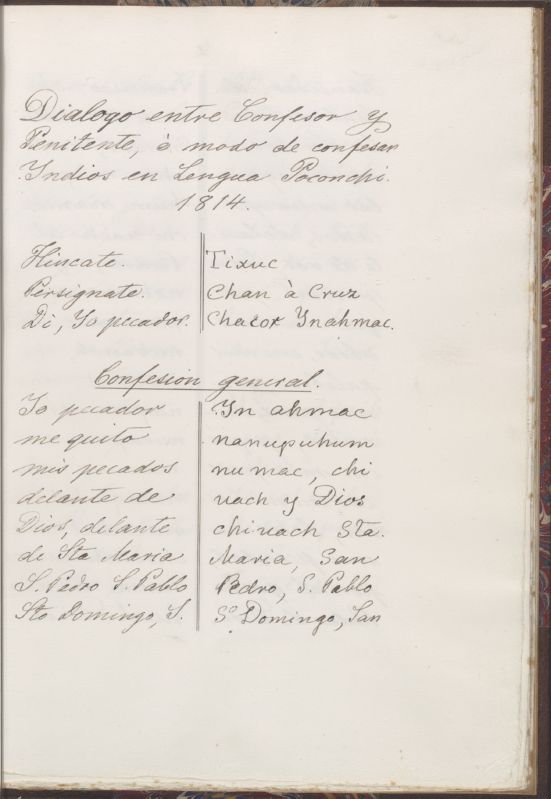 Dialogo entre Confesor y
Penitente, ò modo de confesar
Yndios en Lengua Poconchi.
1814.
Hincate. Tixuc
Persignate. Chan à Cruz
Di, Yo pecador. Chacox Ynahmac.
Confesion general.
Yo pecador Yn ahmac
me quito nanupuhum
mis pecados nu mac, chi
delante de uach y Dios
Dios, delante chiuach Sta.
de Sta Maria Maria, San
S. Pedro S. Pablo Pedro, S. Pablo
Sto Domingo, S. So. Domingo, San